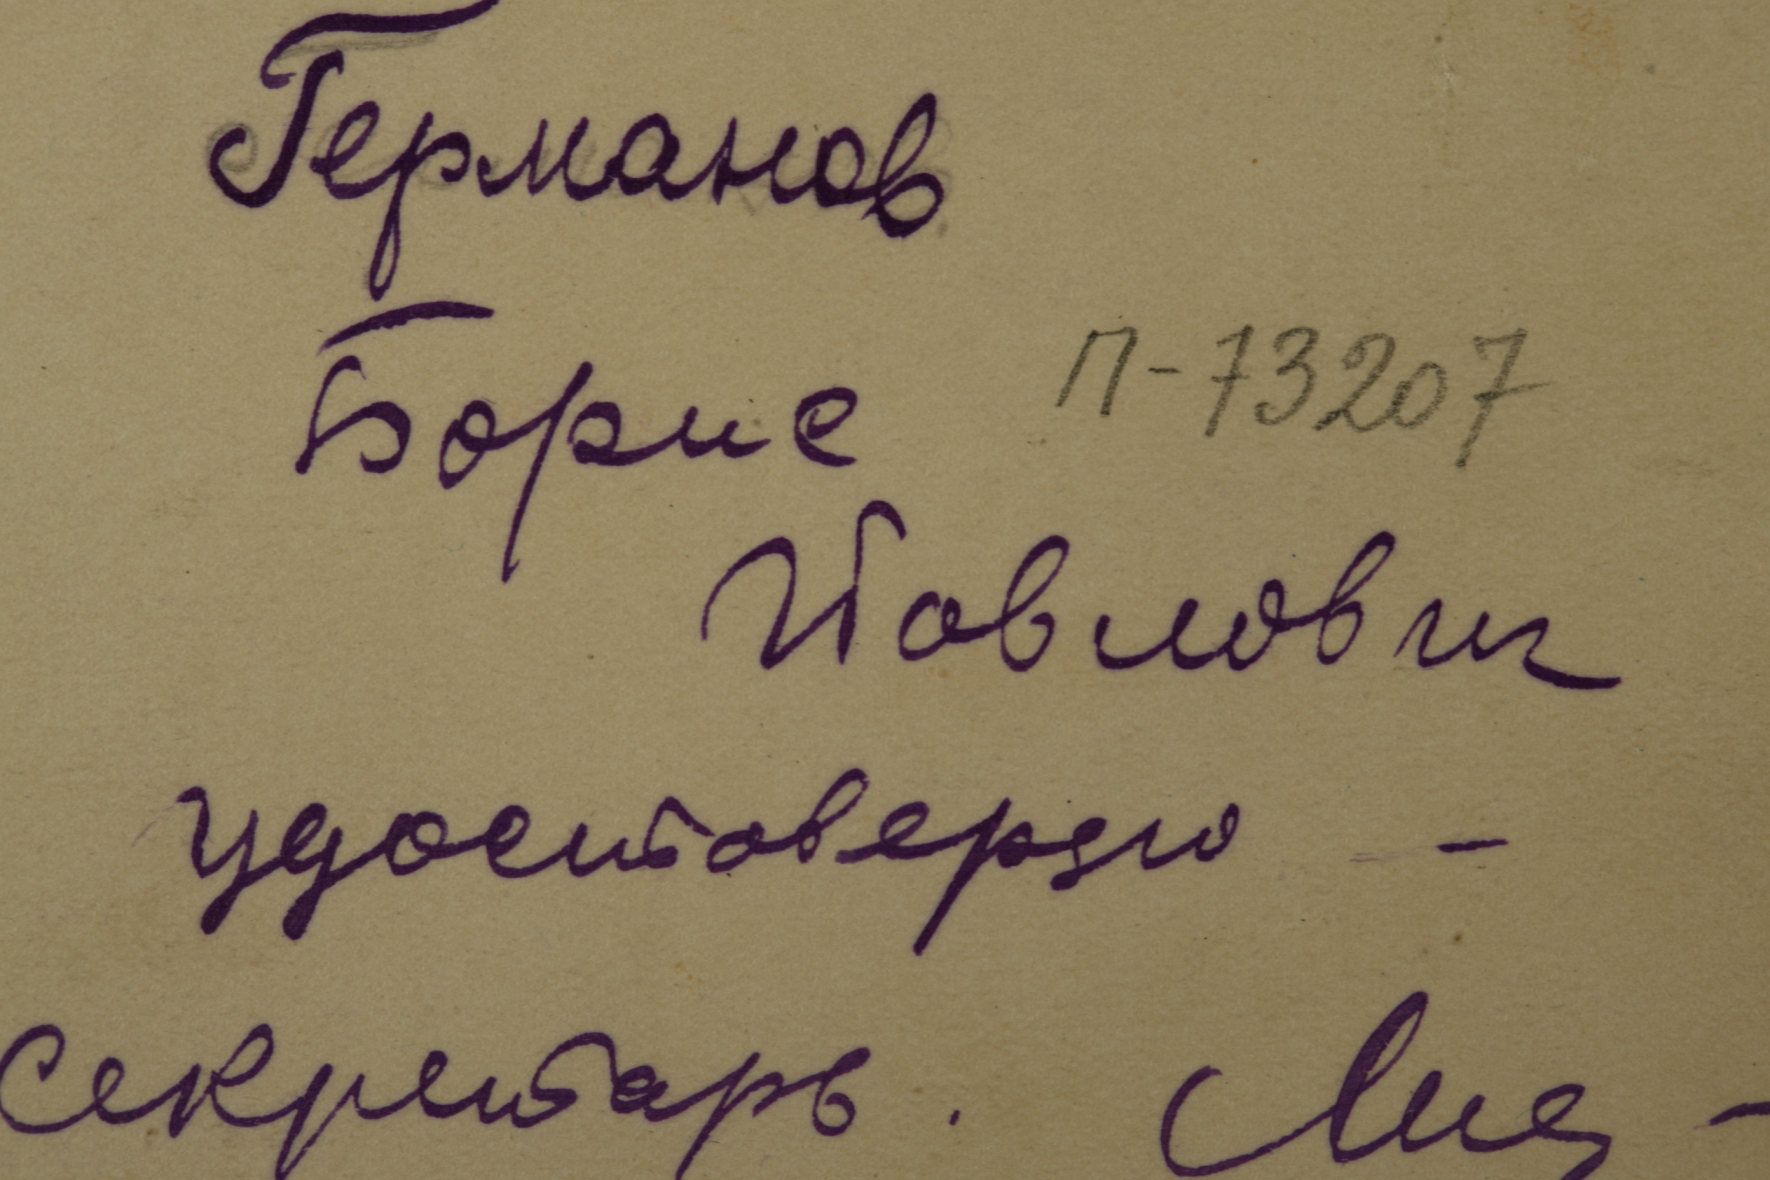 Германов
Борис п-73207
Павлович
удостоверяю -
секретарь.